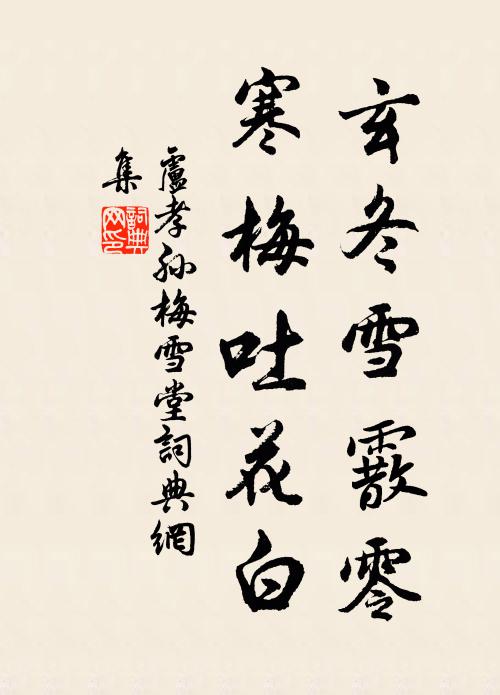 玄冬雪霰零
寒梅吐花白
盧孝孫梅雪堂詞典網
集
詞典网印